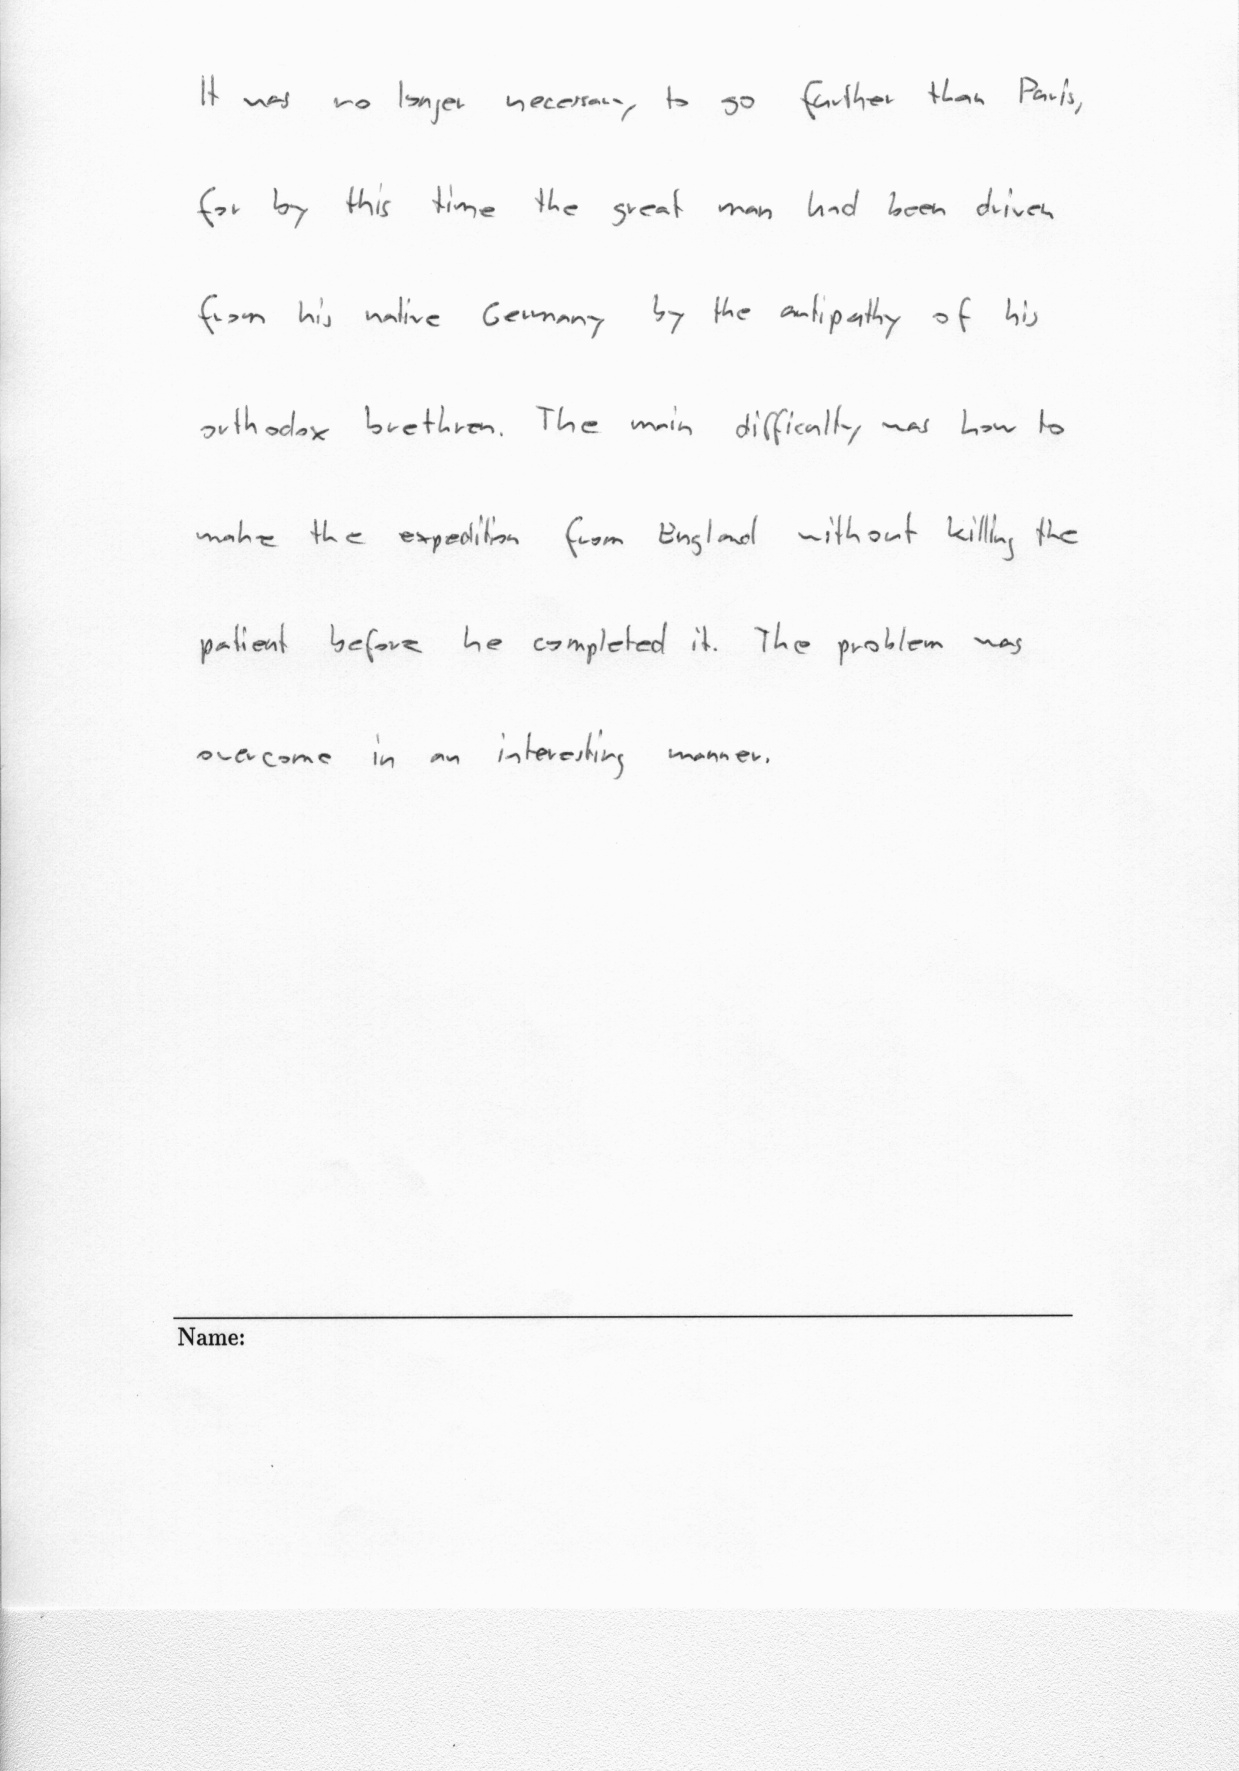 It was no longer necessary to go further than Paris,
for by this time the great man had been driven
from his native Germany by the antipathy of his
orthodox brethren. The main difficulty was how to
make the expedition from England without killing the
patient before he completed it. The problem was
overcome in an interesting manner.
Name: